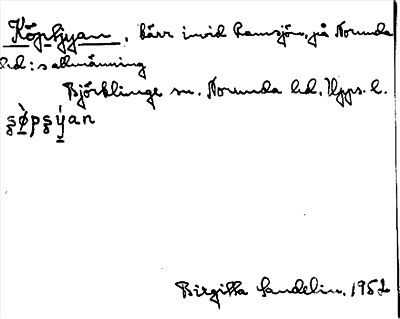 Köpstyan, kärr invid Ramsjön, på Norunda
hd:s allmänning
Björklinge sn. Norunda hd. Upps. l.
Birgitta Sandelin. 1952